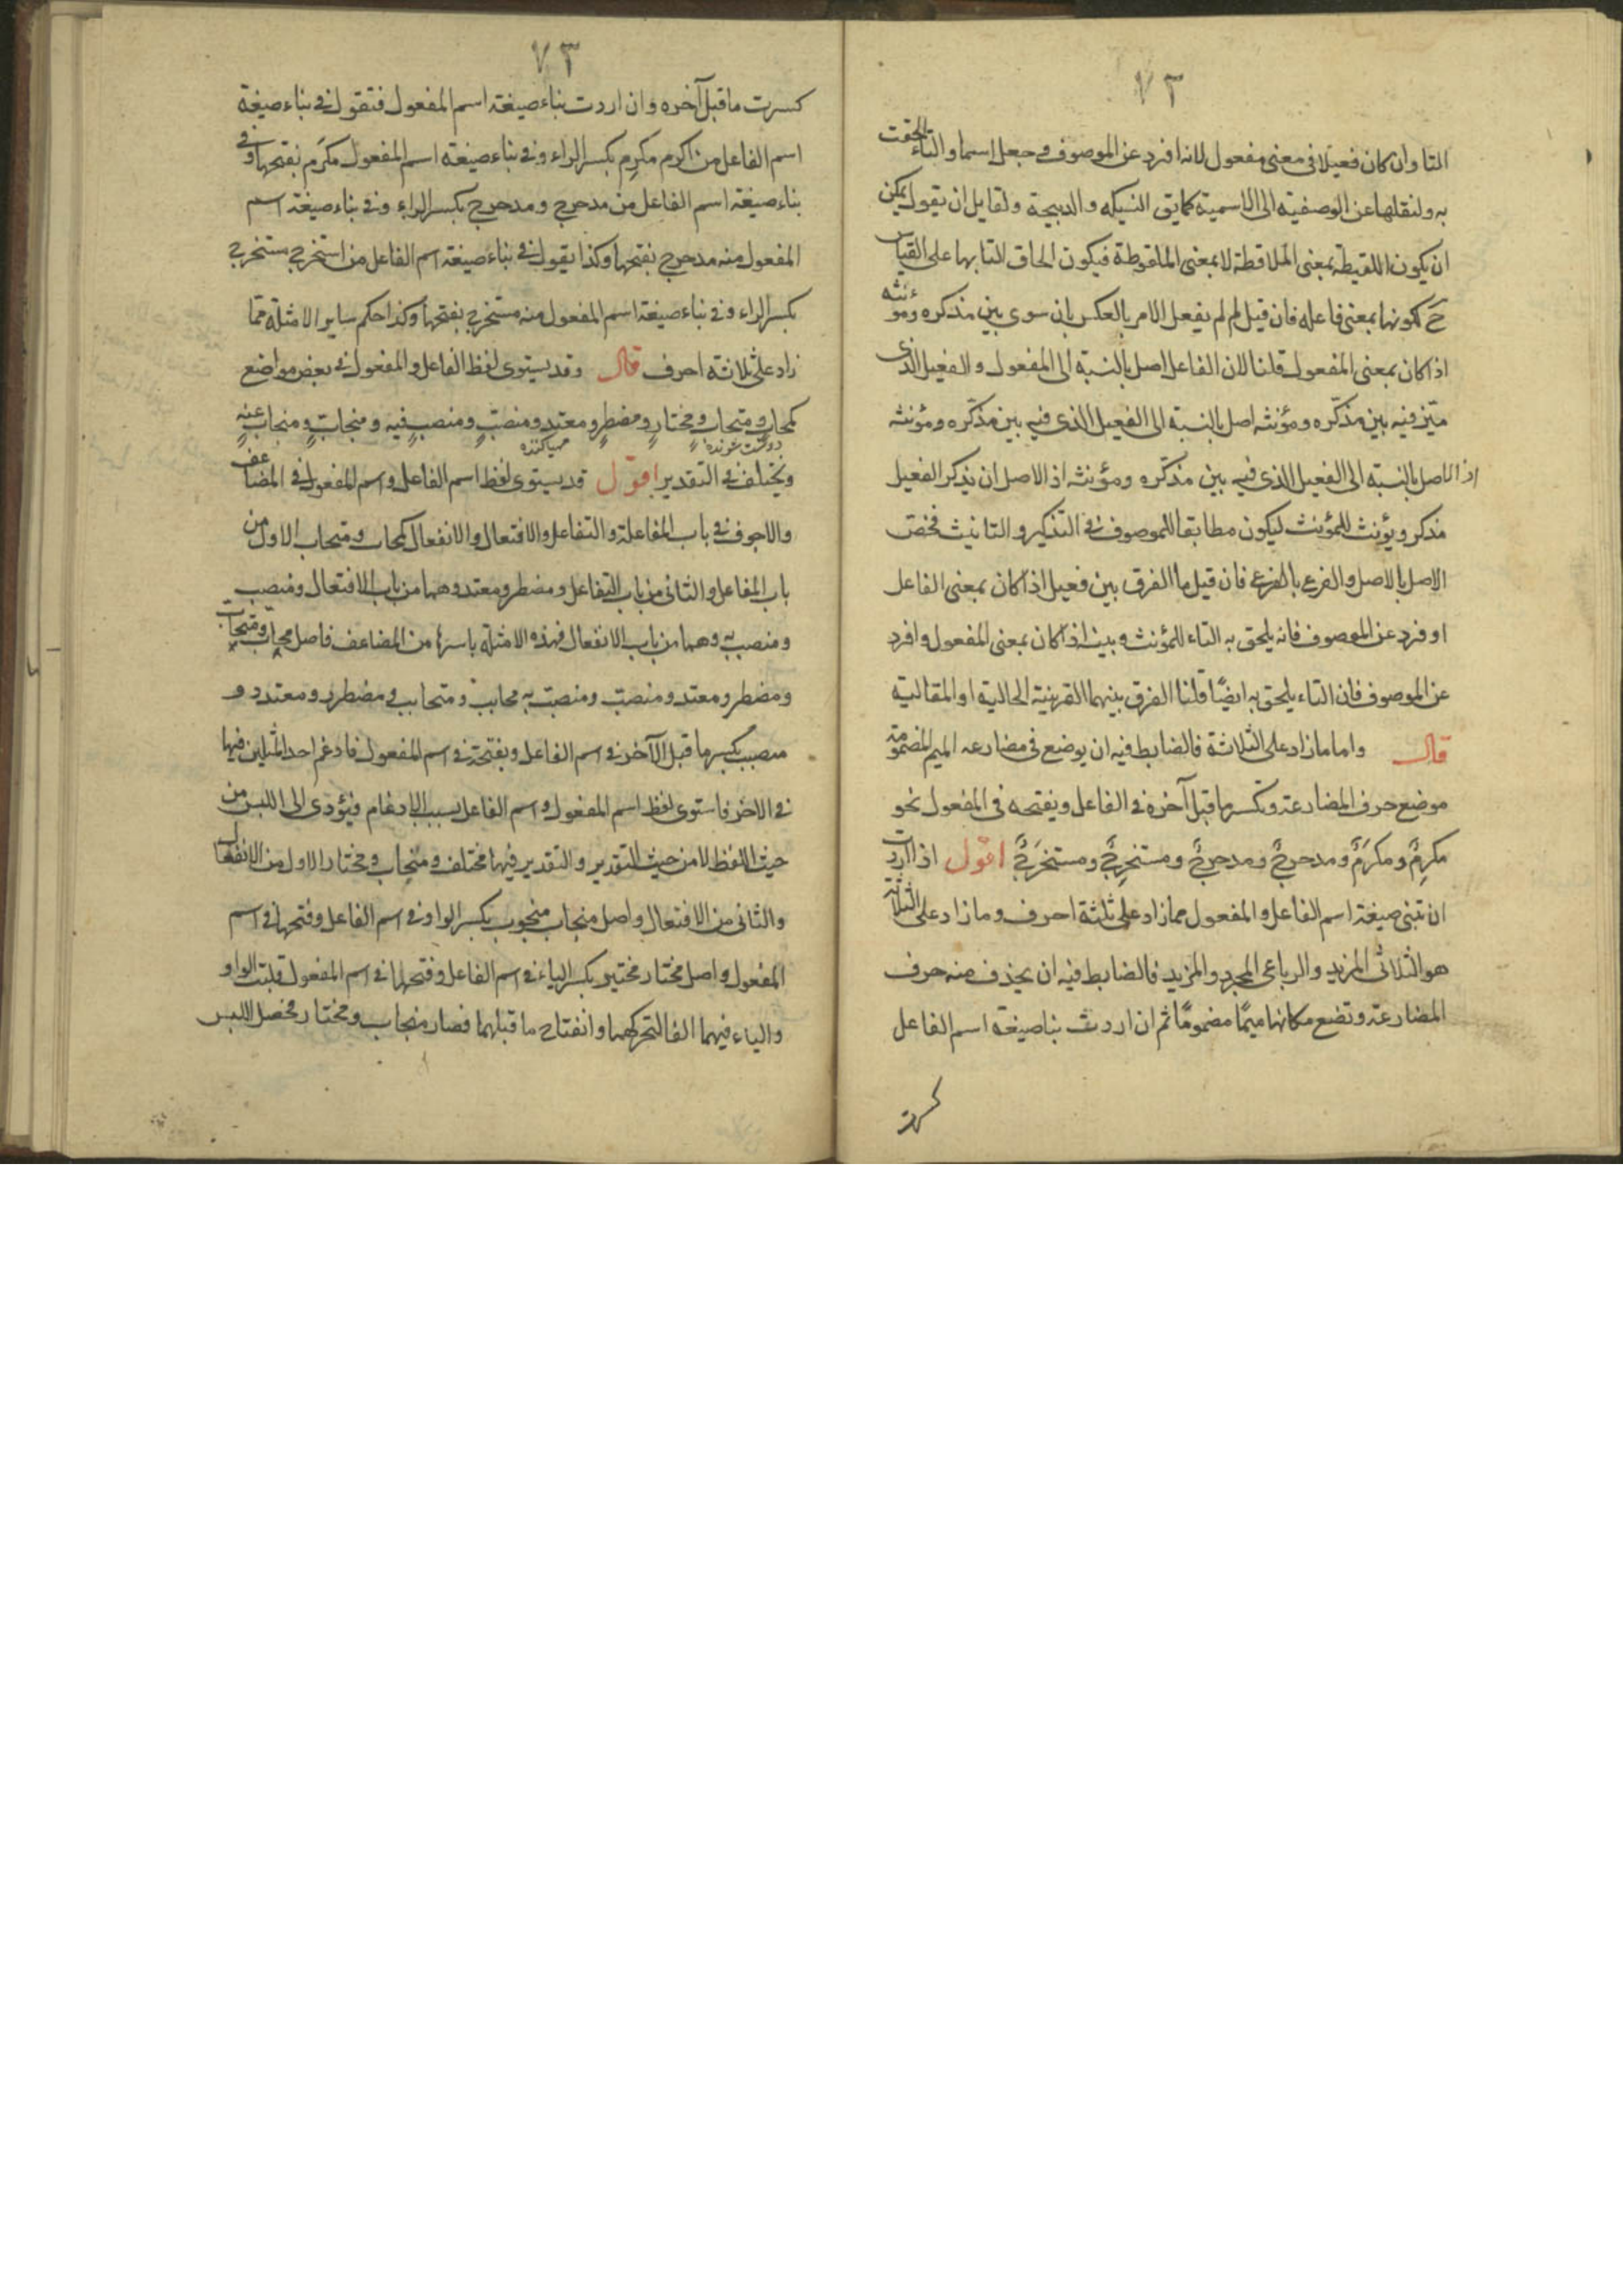 ٧٣
التا وان كان فعيلا فى معنى مفعول لانه افرد عن الموصوف و جعل اسما و التاء لحقت
به و لنقلها عن الوصفية الى الاسمية كما يق النسيكه و الذبيحة و لقايل ان يقول يمكن
ان يكون اللقيطة بمعنى الملاقطة لا بمعنى الملقوطة فيكون الحاق التا بها على القياس
ح لكونها بمعنى فاعله فان قيل لم لم يفعل الامر بالعكس بان سوى بين مذكره ومؤنثه
اذا كان بمعنى المفعول قلنا لان الفاعل اصل بالنسبة الى المفعول و الفعيل الذى
ميّز فيه بين مذكّره و مؤنثه اصل بالنسبة الى الفعيل الذى فيه بين مذكّره ومؤنثه
اذ الاصل بالنسبة الى الفعيل الذى فيه بين مذكره ومؤنثه اذ الاصل ان يذكر الفعيل
مذكر ويؤنث للمؤنث ليكون مطابقا للموصوف فى التذكير و التانيث فخص
الاصل بالاصل و الفرع بالفرع فان قيل ما الفرق بين فعيل اذا كان بمعنى الفاعل
او فرد عن الموصوف فانه يلحق به التاء للمؤنث و بينه اذا كان بمعنى المفعول و افرد
عن الموصوف فان التاء يلحق به ايضًا قلنا الفرق بينهما القرينة الحالية او المقالية
قال واما ما زاد على الثلاثة فالضابط فيه ان يوضع فى مضارعه الميم المضمومة
موضع حرف المضارعة و تكسر ما قبل آخره فى الفاعل و يفتحه فى المفعول نحو
مكرِمٌ و مكرَمٌ و مدحرِجٌ و مدحرجٌ و مستخرِجٌ و مستخرَجٌ اقول اذا اردت
ان تبنى صيغة اسم الفاعل و المفعول مما زاد على ثلثة احرف و ما زاد على الثلاثة
هو الثلاثى المزيد و الرباعى المجرد و المزيد فالضابط فيه ان يحذف منه حرف
المضارعة و تضع مكانها ميمًا مضمومًا ثم ان اردت بنا صيغة اسم الفاعل
كسرت
٧٣
كسرت ما قبل آخره و ان اردت بناء صيغة اسم المفعول فتقول فى بناء صيغة
اسم الفاعل من اكرم مكرِم بكسر الراء و فى بناء صيغة اسم المفعول مكرَم بفتحها و فى
بناء صيغة اسم الفاعل من مدحرج و مدحرج بكسر الراء و فى بناء صيغة اسم
المفعول منه مدحرج بفتحها و كذا تقول فى بناء صيغة اسم الفاعل من استخرج مستخرج
بكسر الراء و فى بناء صيغة اسم المفعول منه مستخرج بفتحها وكذا حكم ساير الامثلة مما
زاد على ثلاثة احرف قال وقد يستوى لفظ الفاعل و المفعول فى بعض مواضع
كمحابٍ و متحاب و مختارٍ و مضطرٍ و معتدٍ و منصبٍ و منصب فيه و منجابٍ و منجاب عنه
دوست شونده مهيا كننده
و يختلف فى التقدير اقول قد يستوى لفظ اسم الفاعل و اسم المفعول فى المضاعف
و الاجوف فى باب المفاعلة و التفاعل و الافتعال و الانفعال كمحاب و متحاب الاول من
باب المفاعل و الثانى من باب التفاعل و مضطر و معتد و هما من باب الافتعال و منصب
و منصب به و هما من باب الانفعال فهذه الامثلة باسرها من المضاعف فاصل محاب و متحاب
و مضطر و معتد و منصب و منصب به محابب و متحابب و مضطرر و معتدد و
منصبب بكسر ما قبل الآخر فى اسم الفاعل و بفتحه فى اسم المفعول فادغم احد المثلين فيها
فى الاخر فاستوى لفظ اسم المفعول و اسم الفاعل بسبب الادغام فيؤدى الى اللبس من
حيث اللفظ لا من حيث التقدير و التقدير فيها مختلف و منجاب و مختار الاول من الانفعال
و الثانى من الافتعال و اصل منجاب منجوب بكسر الواو فى اسم الفاعل و فتحها فى اسم
المفعول و اصل مختار مختير بكسر الياء فى اسم الفاعل و فتحها فى اسم المفعول قلبت الواو
و الياء فيهما الفا لتحركهما و انفتاح ما قبلهما فصار منجاب و مختار فحصل اللبس